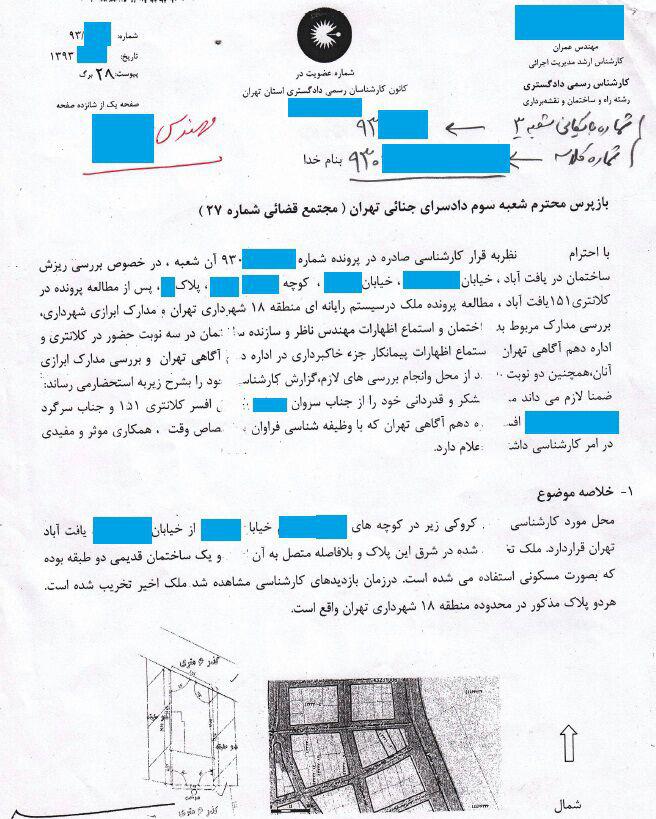 شماره: ۹۳/
تاریخ: ۱۳۹۳
پیوست: ۲۸ برگ
صفحه یک از شانزده صفحه
مهندس
شماره عضویت در
کانون کارشناسان رسمی دادگستری استان تهران
مهندس عمران
کارشناس ارشد مدیریت اجرائی
کارشناس رسمی دادگستری
رشته راه و ساختمان و نقشه‌برداری
شماره بایگانی شعبه ۳ ← ۹۳
شماره کلاسه ← ۹۳۰
بنام خدا
بازپرس محترم شعبه سوم دادسرای جنائی تهران ( مجتمع قضائی شماره ۲۷ )
با احترام نظربه قرار کارشناسی صادره در پرونده شماره ۹۳۰ آن شعبه ، در خصوص بررسی ریزش
ساختمان در یافت آباد ، خیابان ، خیابان ، کوچه ، پلاک ، پس از مطالعه پرونده در
کلانتری ۱۵۱یافت آباد ، مطالعه پرونده ملک درسیستم رایانه ای منطقه ۱۸ شهرداری تهران و مدارک ابرازی شهرداری،
بررسی مدارک مربوط به ختمان و استماع اظهارات مهندس ناظر و سازنده مان در سه نوبت حضور در کلانتری و
اداره دهم آگاهی تهران ستماع اظهارات پیمانکار جزء خاکبرداری در اداره آگاهی تهران و بررسی مدارک ابرازی
آنان،همچنین دو نوبت د از محل وانجام بررسی های لازم،گزارش کارشناس ود را بشرح زیربه استحضارمی رساند:
ضمنا لازم می داند شکر و قدردانی خود را از جناب سروان افسر کلانتری ۱۵۱ و جناب سرگرد
افس ه دهم آگاهی تهران که با وظیفه شناسی فراوان صاص وقت ، همکاری موثر و مفیدی
در امر کارشناسی داشت علام دارد.
۱- خلاصه موضوع
محل مورد کارشناسی کروکی زیر در کوچه های خیابا از خیابان یافت آباد
تهران قراردارد. ملک شده در شرق این پلاک و بلافاصله متصل به آن و یک ساختمان قدیمی دو طبقه بوده
که بصورت مسکونی استفاده می شده است. درزمان بازدیدهای کارشناسی مشاهده شد. ملک اخیر تخریب شده است.
هردو پلاک مذکور در محدوده منطقه ۱۸ شهرداری تهران واقع است.
شمال